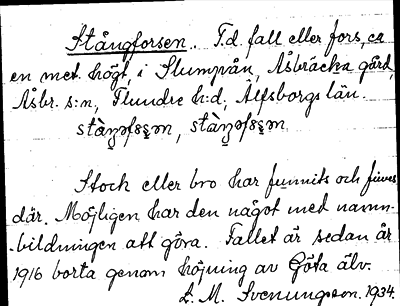 Stångforsen. F.d. fall eller fors, ca
en met. högt, i Slumpån, Åsbräcka gård,
Åsbr. s:n, Flundre h:d, Älfsborgs län.
Stock eller bro har funnits och finnes
där. Möjligen har den något med namn-
-bildningen att göra. Fallet är sedan år
1916 borta genom höjning av Göta älv.
L. M. Svenungson. 1934.